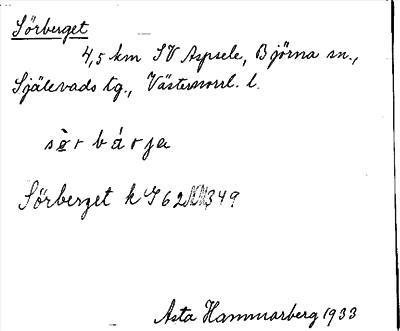 Sörberget
4,5 km SV Aspsele, Björna sn.,
Själevads tg., Västernorrl. l.
Sörberget k
Asta Hammarberg 1933